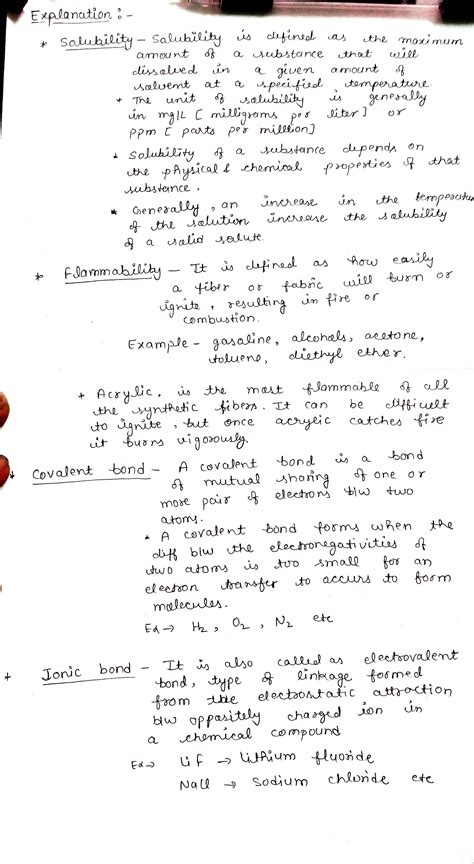 Explanation :-
* Solubility - Solubility is defined as the maximum
amount of a substance that will
dissolved in a given amount of
solvent at a specified temperature
+ The unit of solubility is generally
in mg/L [ milligrams per liter ] or
ppm [ parts per million ]
* Solubility of a substance depends on
the physical & chemical properties of that
substance.
* Generally, an increase in the temperature
of the solution increase the solubility
of a solid solute.
* Flammability - It is defined as how easily
a fiber or fabric will burn or
ignite, resulting in fire or
combustion.
Example - gasoline, alcohols, acetone,
toluene, diethyl ether.
+ Acrylic, is the most flammable of all
the synthetic fibers. It can be difficult
to ignite, but once acrylic catches fire
it burns vigorously.
Covalent bond - A covalent bond is a bond
of mutual sharing of one or
more pair of electrons b/w two
atoms.
* A covalent bond forms when the
diff b/w the electronegativities of
two atoms is too small for an
electron transfer to occurs to form
molecules.
Ex → H2, O2, N2 etc
+ Ionic bond - It is also called as electrovalent
bond, type of linkage formed
from the electrostatic attraction
b/w oppositely charged ion in
a chemical compound
Ex → LiF → Lithium fluoride
NaCl → Sodium chloride etc